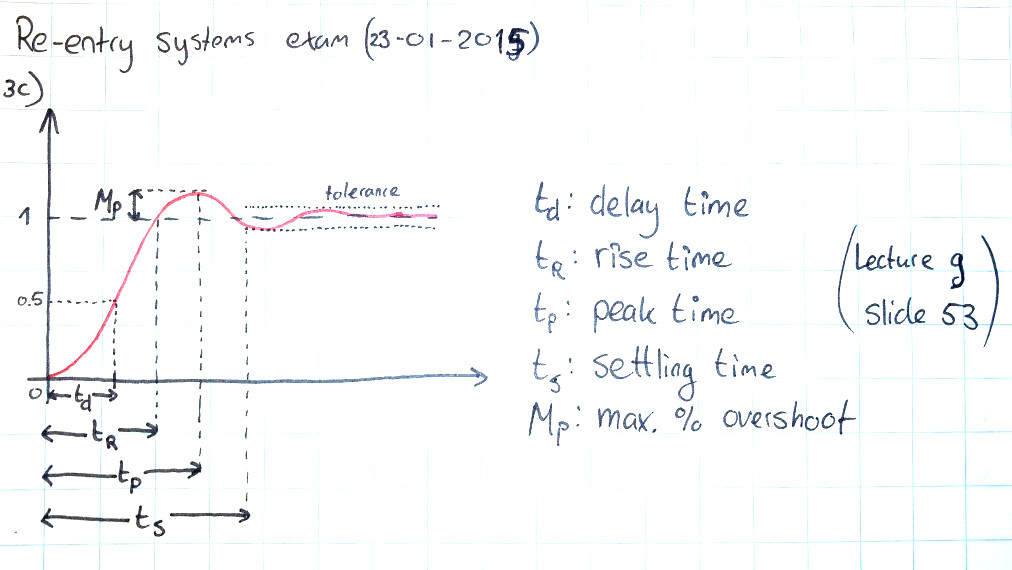 Re-entry systems exam (23-01-2015)
3c)
Mp
tolerance
1
0.5
0
td
tR
tp
ts
td: delay time
tR: rise time
tp: peak time
ts: settling time
Mp: max. % overshoot
(Lecture 9
slide 53)